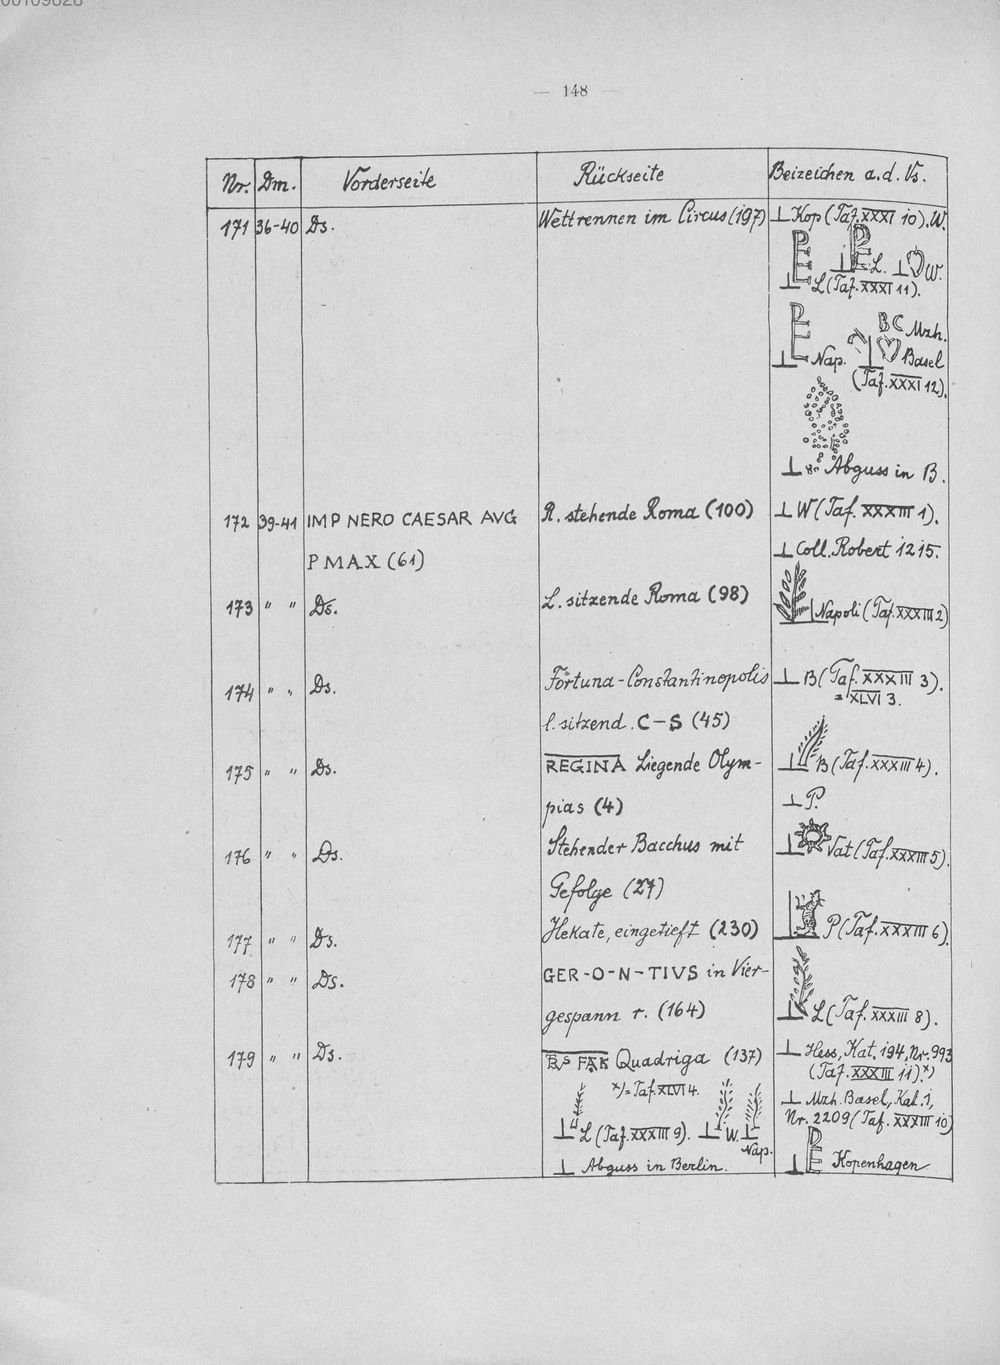 — 148 —
Nr. Dm. Vorderseite Rückseite Beizeichen a.d. Vs.
171 36-40 Ds. Wettrennen im Circus (197) ⊥ Kop (Taf. XXXI 10). W.
⊥ L. ⊥ W.
⊥ L (Taf. XXXI 11).
BC Mzh.
⊥ Nap. Basel
(Taf. XXXI 12).
⊥ Abguss in B.
172 39-41 IMP NERO CAESAR AVG R. stehende Roma (100) ⊥ W (Taf. XXXIII 1).
P MAX (61) ⊥ Coll. Robert 1215.
173 " " Ds. L. sitzende Roma (98) Napoli (Taf. XXXIII 2)
174 " " Ds. Fortuna-Constantinopolis ⊥ B (Taf. XXXIII 3).
= XLVI 3.
l. sitzend. C-S (45)
175 " " Ds. REGINA Liegende Olym- ⊥ B (Taf. XXXIII 4).
pias (4) ⊥ P.
176 " " Ds. Stehender Bacchus mit ⊥ Vat (Taf. XXXIII 5).
Gefolge (27)
177 " " Ds. Hekate, eingetieft (230) P (Taf. XXXIII 6).
178 " " Ds. GER-O-N-TIVS in Vier- ⊥ L (Taf. XXXIII 8).
gespann r. (164)
179 " " Ds. Quadriga (137) ⊥ Hess, Kat. 194, Nr. 993
(Taf. XXXIII 11).x)
x) = Taf. XLVI 4. ⊥ Mzh. Basel, Kat. 1,
Nr. 2209 (Taf. XXXIII 10)
⊥ L (Taf. XXXIII 9). ⊥ W. ⊥ Nap.
⊥ Abguss in Berlin. ⊥ PE Kopenhagen